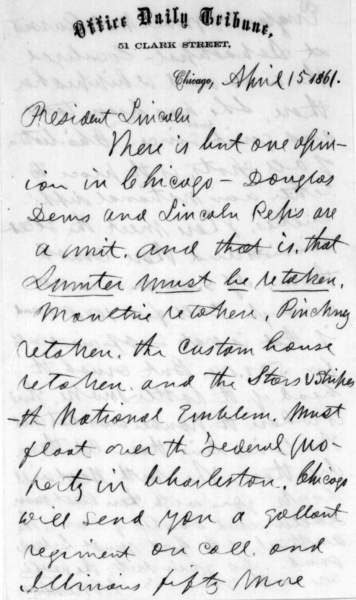 Office Daily Tribune,
51 CLARK STREET,
Chicago, April 15 1861.
President Lincoln
There is but one opin-
ion in Chicago - Douglas
Dems and Lincoln Reps are
a unit. and that is, that
Sumter must be retaken.
Moultrie retaken, Pinckney
retaken. the custom house
retaken. and the Stars & Stripes
- the National Emblem. Must
float over the Federal pro-
perty in Charleston. Chicago
will send you a gallant
regiment on call. and
Illinois fifty more